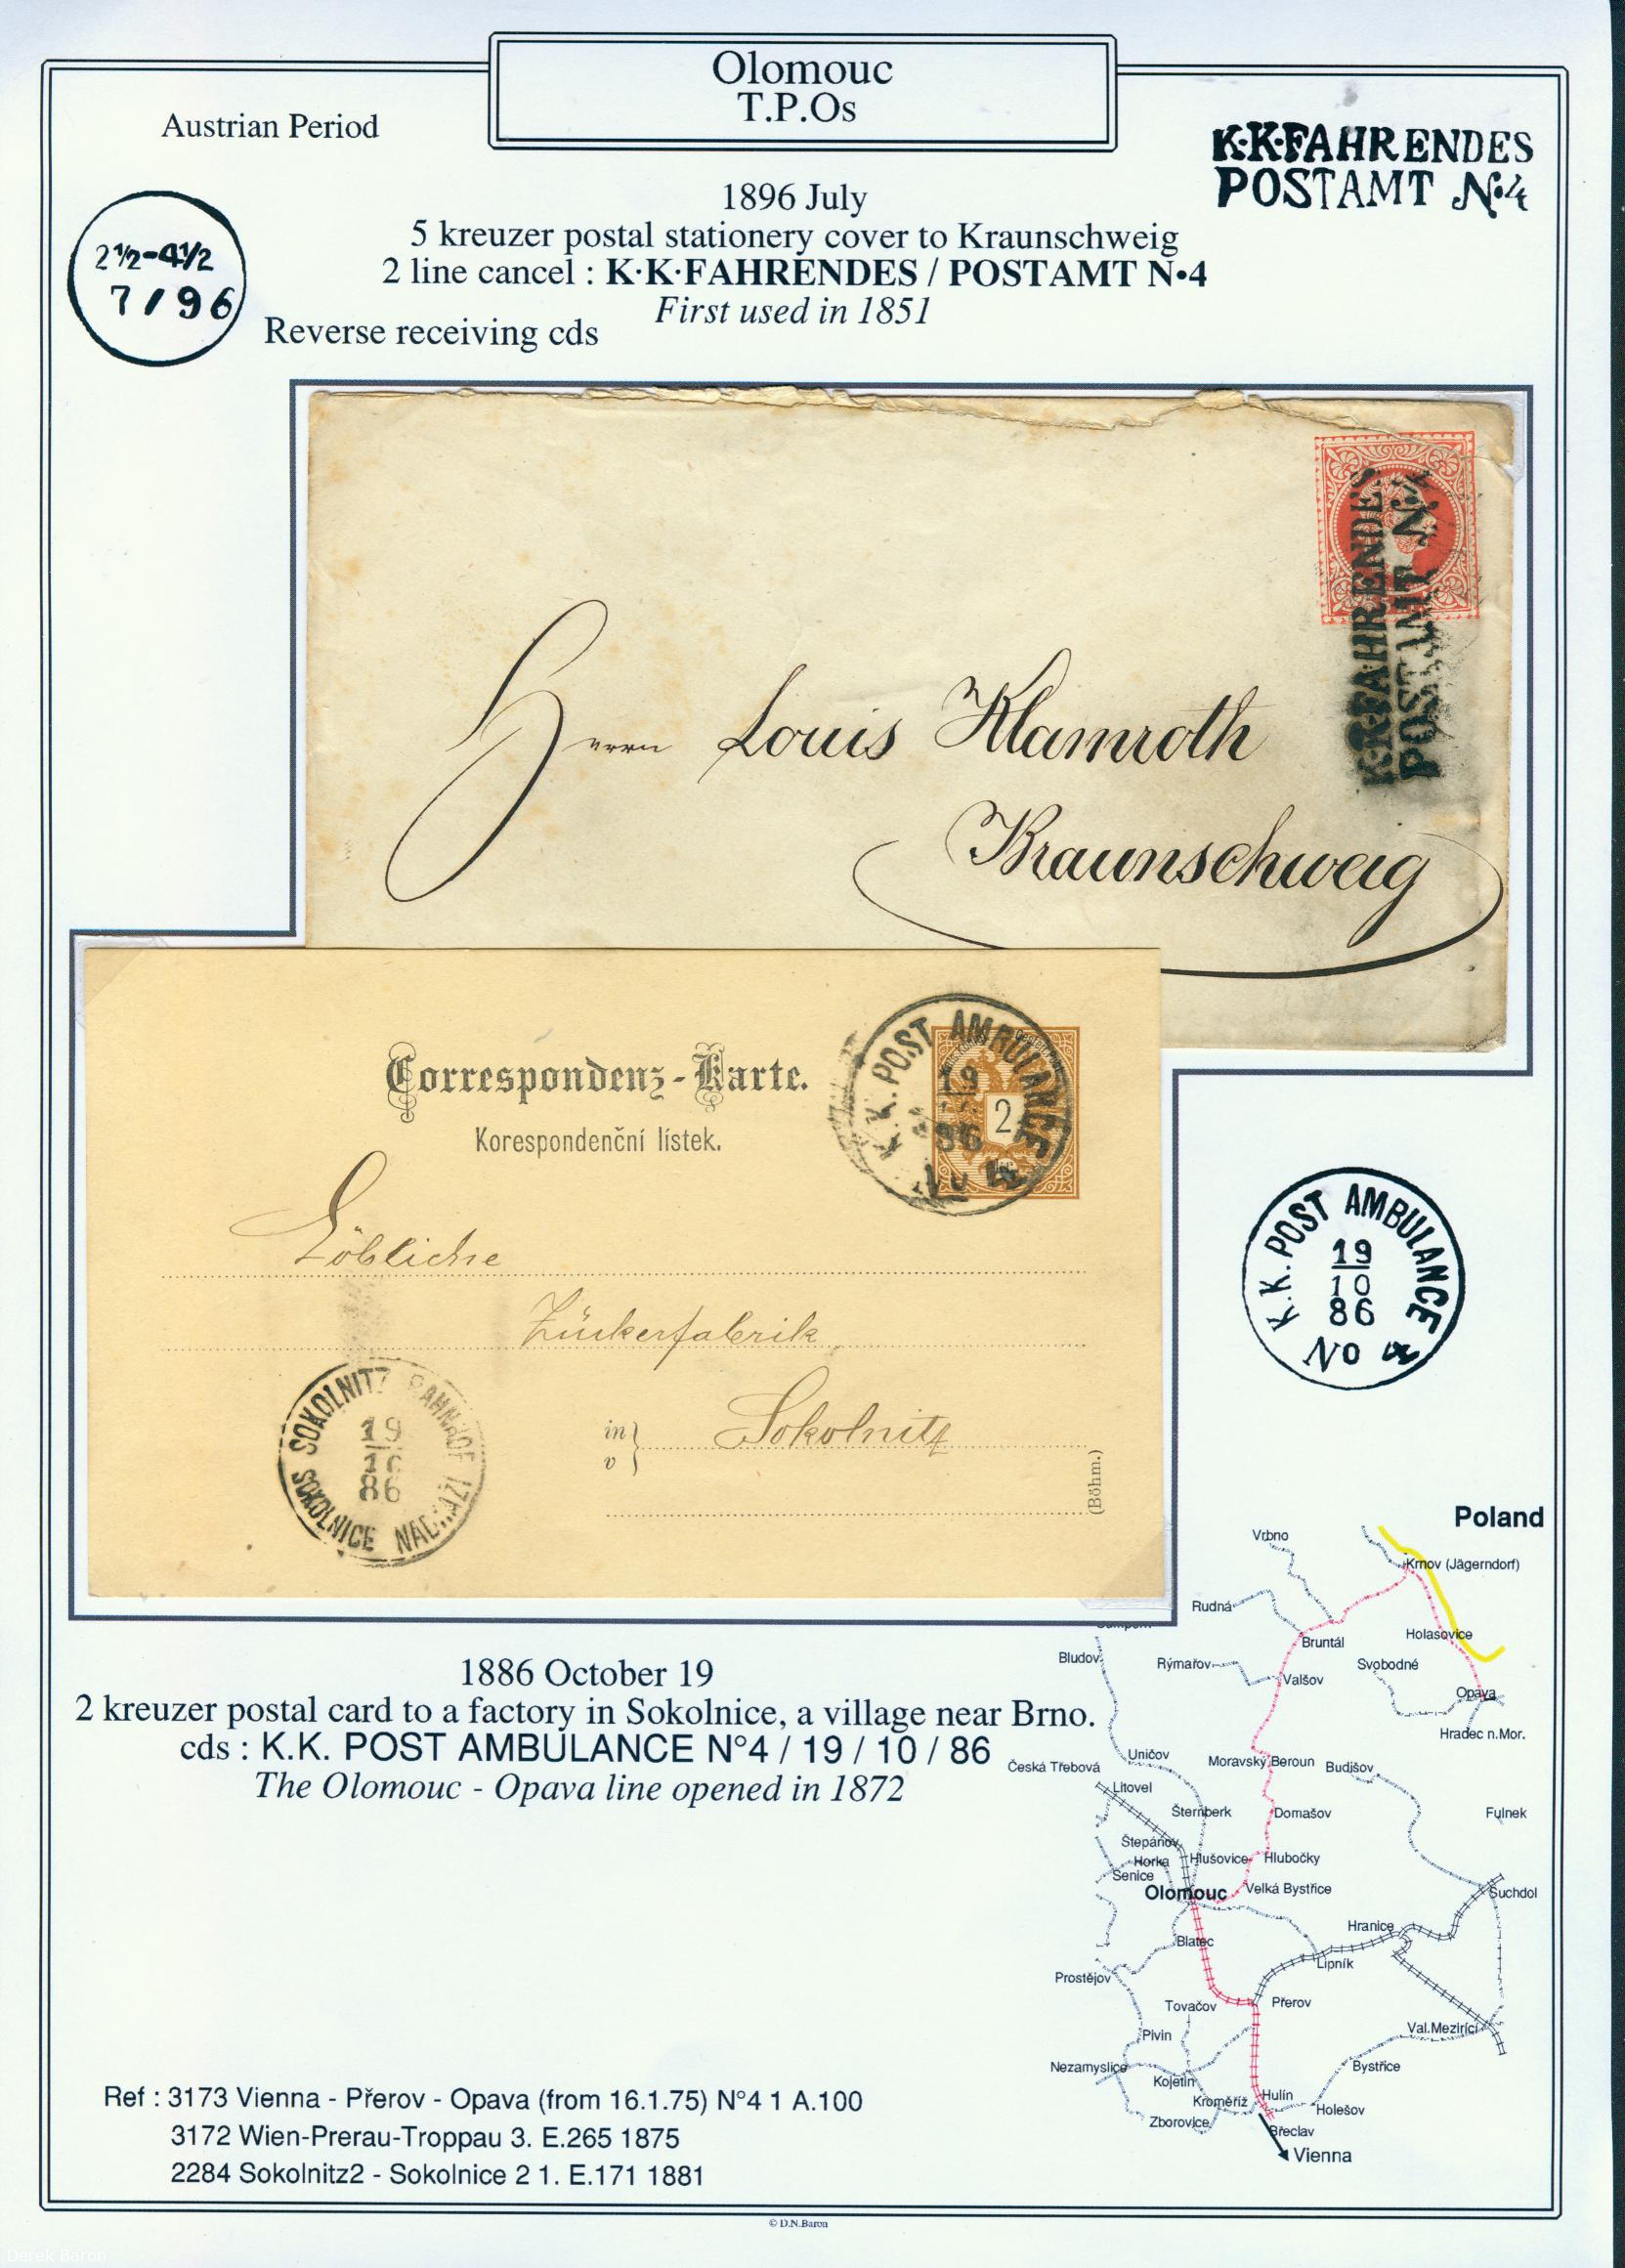 Olomouc
T.P.Os
Austrian Period
K·K·FAHRENDES
POSTAMT N·4
1896 July
5 kreuzer postal stationery cover to Kraunschweig
2 line cancel : K·K·FAHRENDES / POSTAMT N•4
First used in 1851
2½-4½
7/96
Reverse receiving cds
K·K·FAHRENDES
POSTAMT N·4
Herrn Louis Klamroth
Braunschweig
Correspondenz-Karte.
Korespondenční lístek.
K.K. POST AMBULANCE
19
86
No 4
2
Löbliche
Zuckerfabrik
in
v
Sokolnitz
(Böhm.)
SOKOLNITZ BAHNHOF
19
10
86
SOKOLNICE NADRAZI
K.K. POST AMBULANCE
19
10
86
No 4
1886 October 19
2 kreuzer postal card to a factory in Sokolnice, a village near Brno.
cds : K.K. POST AMBULANCE N°4 / 19 / 10 / 86
The Olomouc - Opava line opened in 1872
Poland
Vrbno
Krnov (Jägerndorf)
Rudná
Bruntál
Holasovice
Bludov
Rýmařov
Valšov
Svobodné
Opava
Hradec n.Mor.
Česká Třebová
Uničov
Moravský Beroun
Budišov
Litovel
Šternberk
Domašov
Fulnek
Štepánov
Horka
Hlušovice
Hlubočky
Senice
Olomouc
Velká Bystřice
Suchdol
Hranice
Blatec
Lipník
Prostějov
Tovačov
Přerov
Val.Mezirící
Pivin
Nezamyslice
Bystřice
Kojetín
Kroměříž
Hulín
Holešov
Zborovice
Břeclav
Vienna
Ref : 3173 Vienna - Přerov - Opava (from 16.1.75) N°4 1 A.100
3172 Wien-Prerau-Troppau 3. E.265 1875
2284 Sokolnitz2 - Sokolnice 2 1. E.171 1881
© D.N.Baron
Derek Baron